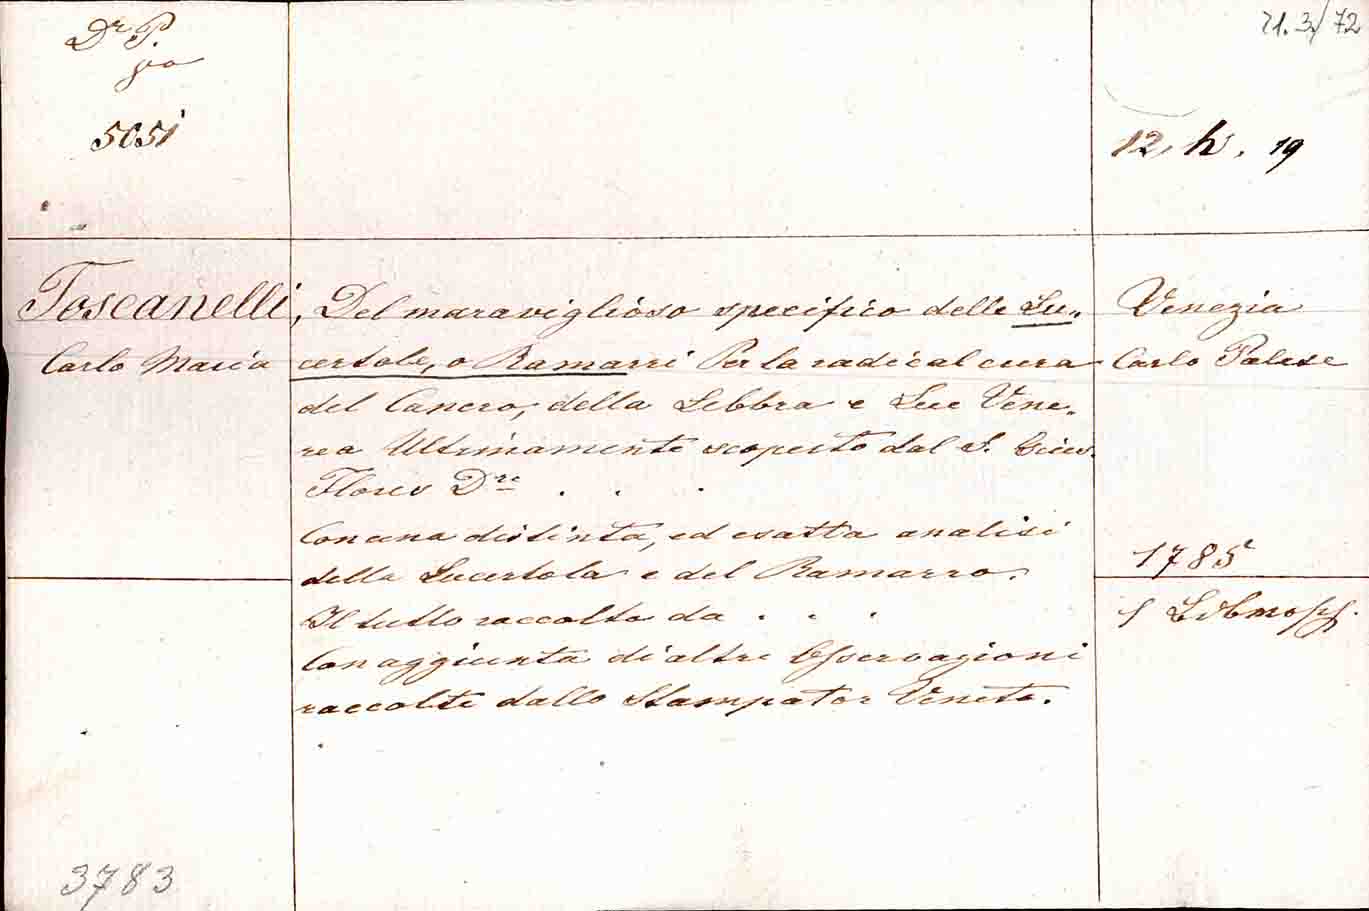 Dr P.
gra
5051
21.3/72
12. h. 19
Toscanelli,
Carlo Maria
Del maraviglioso specifico delle Lu-
certole, o Ramarri Per la radical cura
del Cancro, della Lebbra e Lue Vene-
rea Ultimamente scoperto dal S. Gius.
Flores Dre . . .
Con una distinta, ed esatta analisi
della Lucertola e del Ramarro.
Il tutto raccolto da . . .
Con aggiunta di altre Osservazioni
raccolte dallo Stampator Veneto.
Venezia
Carlo Palese
1785
3783